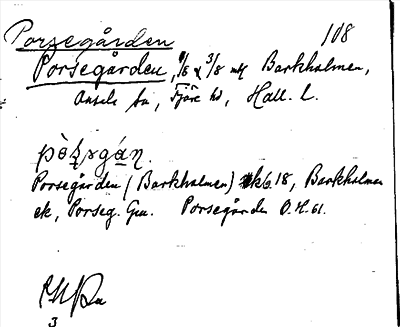 Porsegården 108
Porsegården, 1/8 & 3/8 mtl Barkholmen,
Onsala sn, Fjäre hd, Hall. l.
Porsegården (Barkholmen) 18, Barkholmen
ek, Porseg. Gm. Porsegården O.H. 61.
3